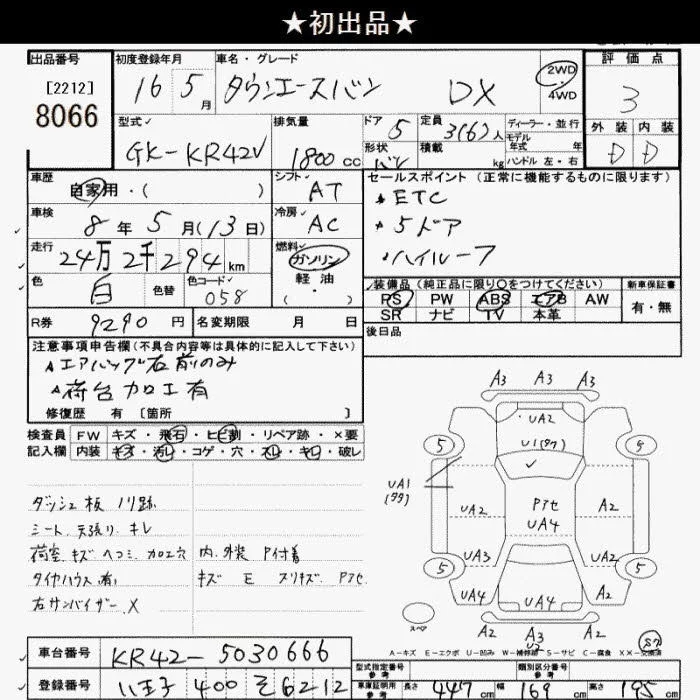 ★初出品★
出品番号
[2212]
8066
初度登録年月
16 5月
車名・グレード
タウンエースバン DX
2WD
4WD
評価点
3
型式
GK-KR42V
排気量
1800 cc
ドア 5
定員 3(6)人
形状 バン
積載 kg
ディーラー・並行
モデル年式 年
ハンドル 左・右
外装 内装
D D
車歴
自家用・( )
シフト AT
セールスポイント(正常に機能するものに限ります)
ETC
5ドア
ハイルーフ
車検
8年5月(13日)
冷房 AC
走行
24万2千294km
燃料
ガソリン
軽油
( ・ )
色 白
色替
色コード 058
装備品(純正品に限り○をつけてください)
新車保証書
PS PW ABS エアB AW
SR ナビ TV 本革
有・無
R券 9290円
名変期限 月 日
後日品
注意事項申告欄(不具合内容等は具体的に記入して下さい)
エアバッグ右前のみ
荷台加工有
修復歴 有 [箇所 ]
検査員記入欄
FW キズ・飛石・ヒビ割・リペア跡・×要
内装 キズ・汚レ・コゲ・穴・スレ・キレ・破レ
ダッシュ板 ノリ跡
シート、天張り、キレ
荷室、キズ ヘコミ 加工穴 内、外装 P付着
タイヤハウス 有) キズ E スリキズ Pアセ
右サンバイザー X
A3 A3 A3
UA2
U1(タワ)
5 5
UA1
(タワ)
UA2 Pアセ UA4 A2
UA3 UA2
5 5
UA4 UA4 UA4
スペア
A2 A3 A2
A-キズ E-エクボ U-凹み W-補修跡 S-サビ C-腐食 XX-交換済
車台番号 KR42-5030666
登録番号 八王子 400 そ 6212
型式指定番号
参考
類別区分番号
参考
車庫証明用
参考
長さ 447cm 幅 169cm 高さ 195cm